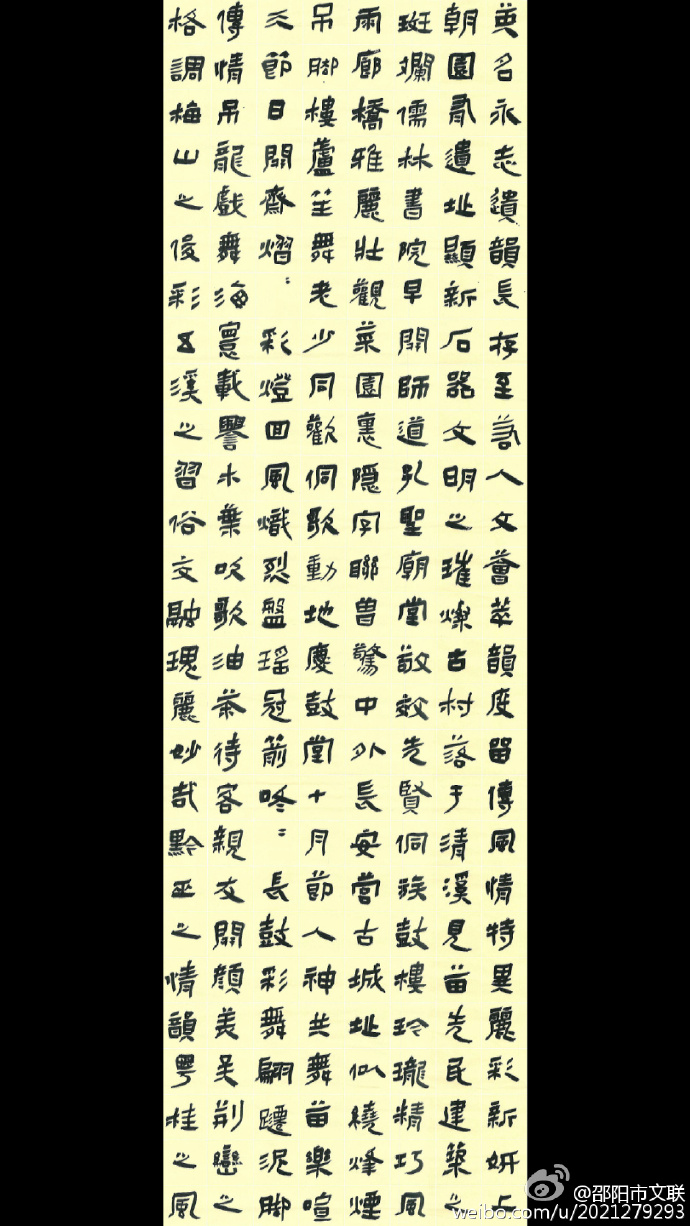 英名永志遺韻長存至若人文薈萃韻度留傳風情特異麗彩新妍上
朝園有遺址顯新石器文明之璀燦古村落于清溪見苗先民建築之
斑斕儒林書院早開師道孔聖廟堂敬效先賢侗族鼓樓玲瓏精巧風
雨廊橋雅麗壯觀菜園裏隱字聯曾驚中外長安營古城址似繞烽煙
吊脚樓蘆笙舞老少同歡侗歌動地慶鼓堂十月節人神共舞苗樂喧
天節日開齋熠熠彩燈回風熾烈盤瑶冠箭咚咚長鼓彩舞翩躚泥脚
傳情吊龍戲舞海寰載譽木葉吹歌油茶待客親友開顏美吴荆巒之
格調梅山之俊彩五溪之習俗交融瑰麗妙哉黔巫之情韻粤桂之風
@邵阳市文联
weibo.com/u/2021279293